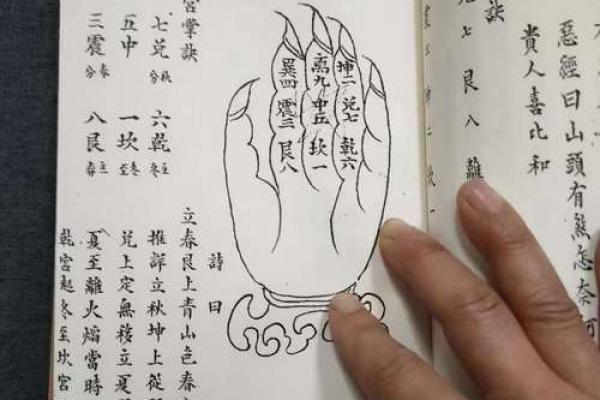 惡經曰山頭有煞怎奈何
貴人喜比和
訣
七 艮八 離
坤二 兌七 乾六
離九 中五 坎一
巽四 震三 艮八
宮掌訣
七兌秋分 六乾立冬
五中 一坎冬至
三震春分 八艮立春
詩曰
立春艮上青山色春
推詳立秋坤上從
兌上定無移立夏
夏至離火焰當時
乾宮起冬至坎宮